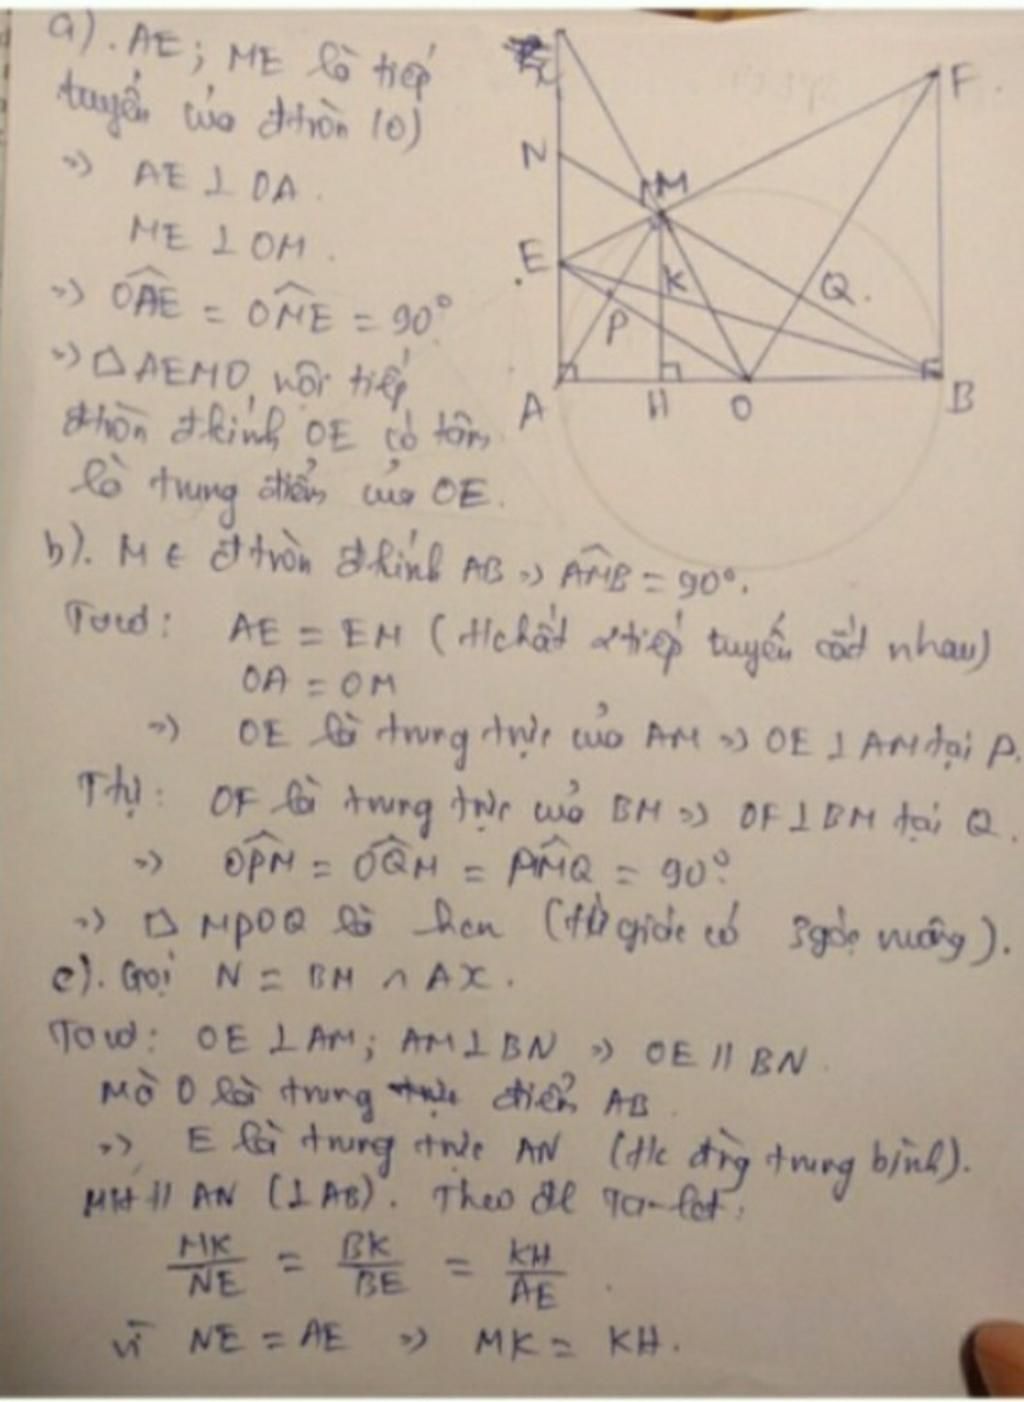 a). AE; ME là tiếp
tuyến của đtròn (O)
=> AE ⊥ OA.
ME ⊥ OM.
=> OÂE = OM̂E = 90°
=> □ AEMO nội tiếp
đtròn đkính OE có tâm
là trung điểm của OE.
N
E
A
H
O
B
F
M
K
P
Q.
b). M ∈ đtròn đkính AB => AM̂B = 90°.
Ta có: AE = EM (t/chất 2 tiếp tuyến cắt nhau)
OA = OM
=> OE là trung trực của AM => OE ⊥ AM tại P.
Ttự: OF là trung trực của BM => OF ⊥ BM tại Q.
=> OP̂M = OQ̂M = PM̂Q = 90°.
=> □ MPOQ là hcn (tứ giác có 3 góc vuông).
c). Gọi N = BM ∩ Ax.
Ta có: OE ⊥ AM; AM ⊥ BN => OE // BN.
Mà O là trung điểm AB.
=> E là trung trực AN (t/c đg trung bình).
MH // AN (⊥ AB). Theo đl Ta-let:
MK/NE = BK/BE = KH/AE.
Vì NE = AE => MK = KH.